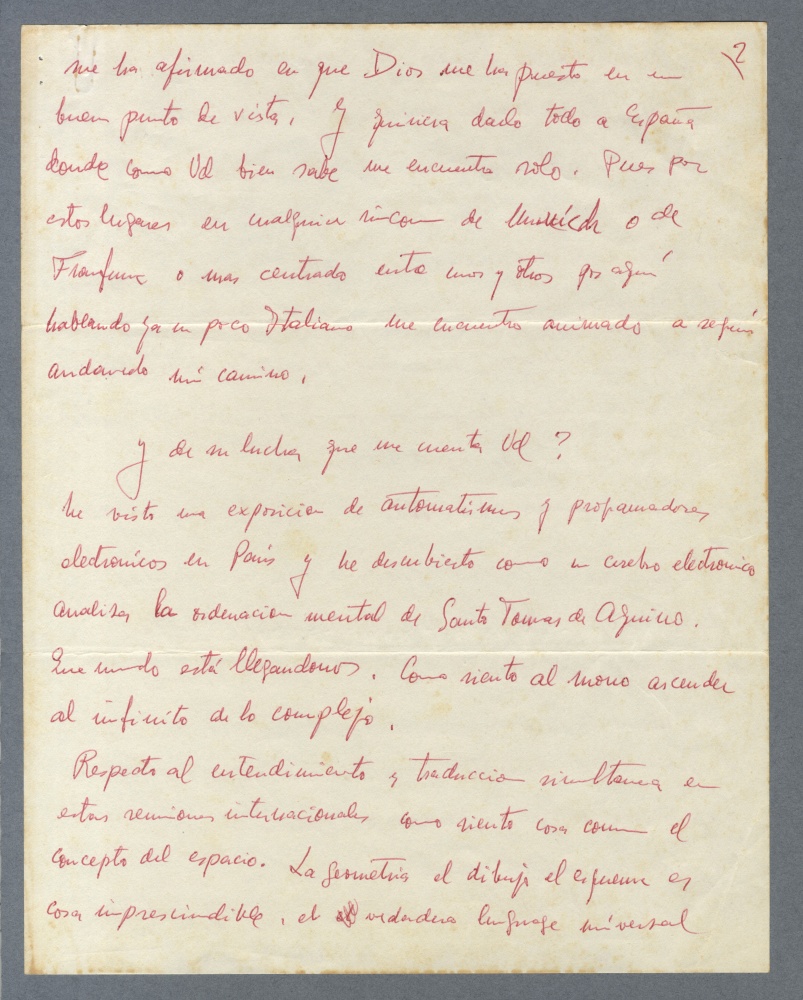 2
me ha afirmado en que Dios me ha puesto en un
buen punto de vista. Y quisiera darlo todo a España
donde como Vd bien sabe me encuentro solo. Pues por
estos lugares en cualquier rincon de Munich o de
o mas centrado entre unos y otros por aqui
hablando ya un poco Italiano me encuentro animado a seguir
andando mi camino.
y de su lucha que me cuenta Vd?
he visto una exposicion de automatismos y programadores
electronicos en Paris y he descubierto como un cerebro electronico
analiza la ordenacion mental de Santo Tomas de Aquino.
Que mundo está llegandonos. Como siento al mono ascender
al infinito de lo complejo.
Respecto al entendimiento y traduccion simultanea en
estas reuniones internacionales como siento cosa comun el
concepto del espacio. La geometria el dibujo el esquema es
cosa imprescindible, el verdadero lenguage universal